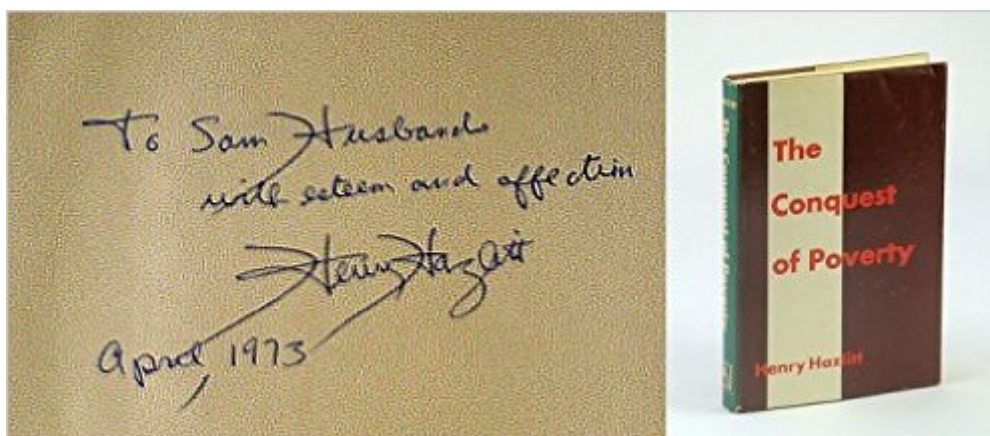 To Sam Husbands
with esteem and affection
Henry Hazlitt
April 1973
The
Conquest
of Poverty
Henry Hazlitt